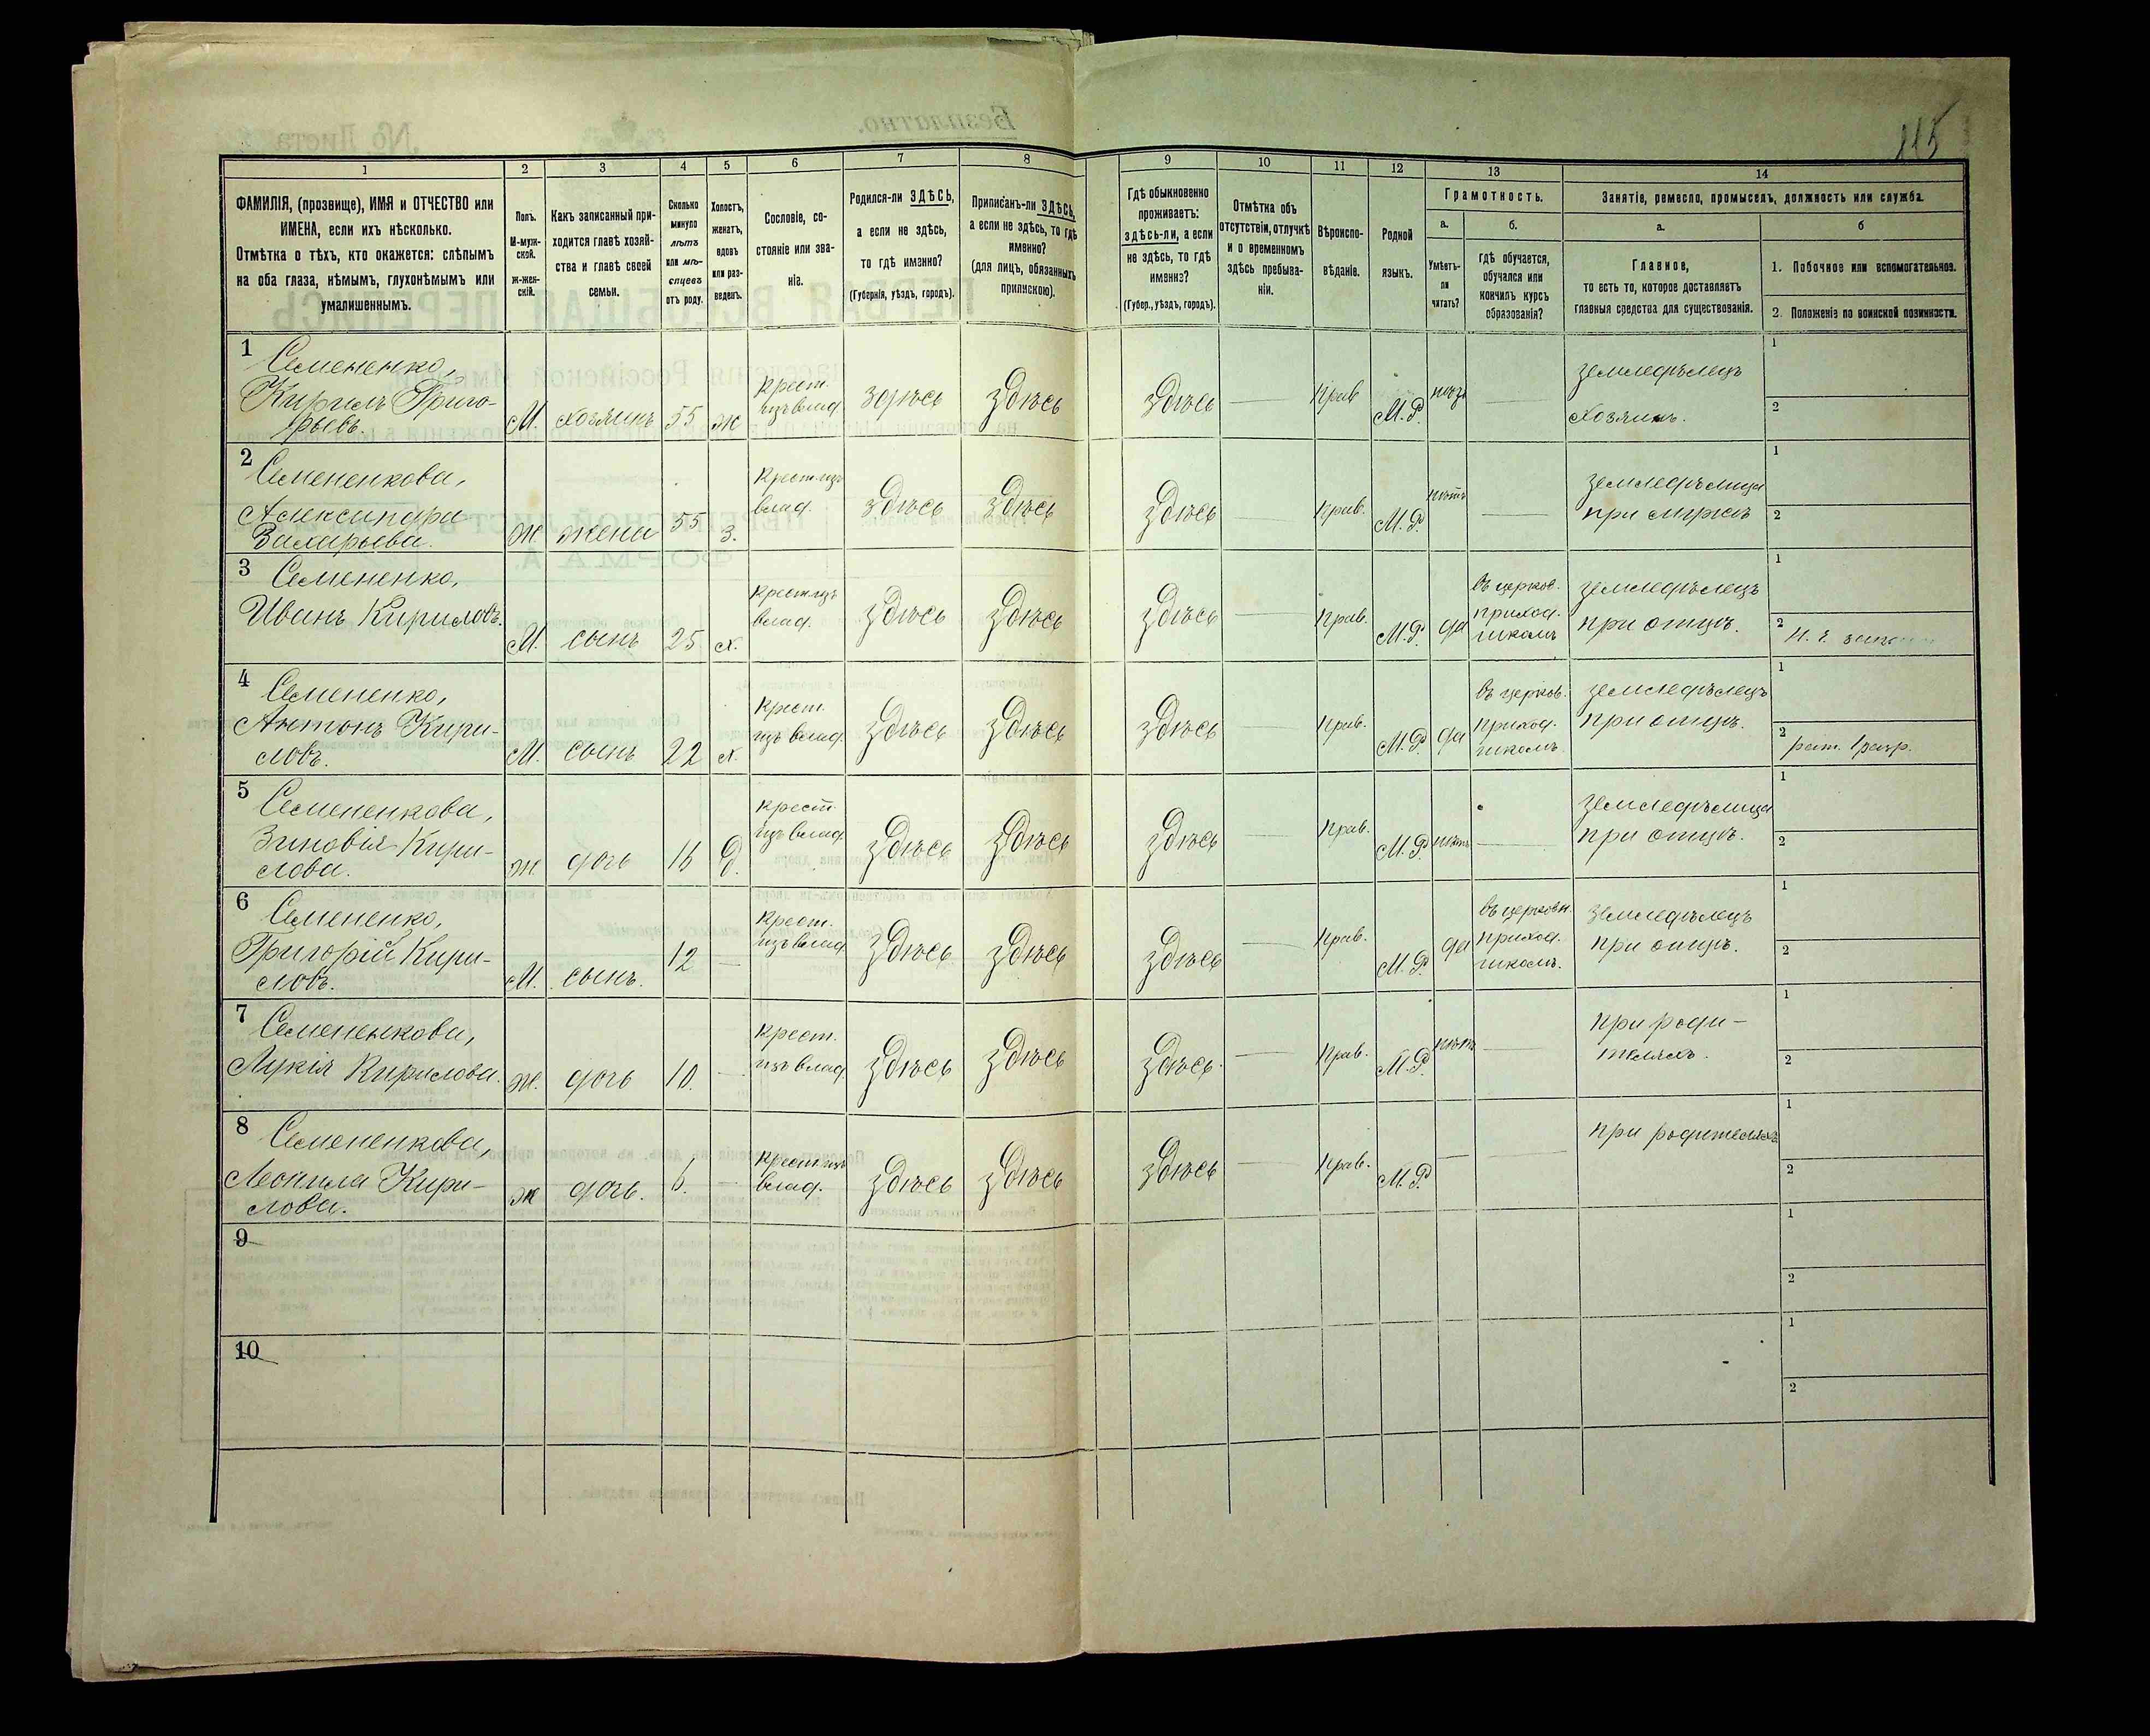 115
1
2
3
4
5
6
7
8
9
10
11
12
13
14
ФАМИЛІЯ, (прозвище), ИМЯ и ОТЧЕСТВО или
ИМЕНА, если ихъ нѣсколько.
Отмѣтка о тѣхъ, кто окажется: слѣпымъ
на оба глаза, нѣмымъ, глухонѣмымъ или
умалишеннымъ.
Полъ.
М-муж-
ской.
ж-жен-
скій.
Какъ записанный при-
ходится главѣ хозяй-
ства и главѣ своей
семьи.
Сколько
минуло
лѣтъ
или мѣ-
сяцевъ
отъ роду.
Холостъ,
женатъ,
вдовъ
или раз-
веденъ.
Сословіе, со-
стояніе или зва-
ніе.
Родился-ли ЗДѢСЬ,
а если не здѣсь,
то гдѣ именно?
(Губернія, уѣздъ, городъ).
Приписанъ-ли ЗДѢСЬ,
а если не здѣсь, то гдѣ
именно?
(для лицъ, обязанныхъ
припискою).
Гдѣ обыкновенно
проживаетъ:
здѣсь-ли, а если
не здѣсь, то гдѣ
именно?
(Губер., уѣздъ, городъ).
Отмѣтка объ
отсутствіи, отлучкѣ
и о временномъ
здѣсь пребыва-
ніи.
Вѣроиспо-
вѣданіе.
Родной
языкъ.
Грамотность.
а.
Умѣетъ-
ли
читать?
б.
гдѣ обучается,
обучался или
кончилъ курсъ
образованія?
Занятіе, ремесло, промыселъ, должность или служба.
а.
Главное,
то есть то, которое доставляетъ
главныя средства для существованія.
б
1. Побочное или вспомогательное.
2. Положеніе по воинской повинности.
1 Семененко,
Кирилъ Григо-
рьевъ.
М. хозяинъ 55 ж
крест.
изъ влад.
здѣсь здѣсь здѣсь — прав М.Р. нѣтъ —
земледѣлецъ
хозяинъ.
1
2
2 Семененкова,
Александра
Захарьева.
ж. жена 55 з.
крест. изъ
влад.
здѣсь здѣсь здѣсь — прав. М.Р. нѣтъ —
земледѣлица
при мужѣ
1
2
3 Семененко,
Иванъ Кириловъ.
М. сынъ 25 х.
крест. изъ
влад.
здѣсь здѣсь здѣсь — прав. М.Р. да
въ церков.
приход.
школѣ
земледѣлецъ
при отцѣ.
1
2
4 Семененко,
Антонъ Кири-
ловъ.
М. сынъ 22 х.
крест.
изъ влад.
здѣсь здѣсь здѣсь — прав. М.Р. да
въ церков.
приход.
школѣ
земледѣлецъ
при отцѣ.
1
2
рат. 1 разр.
5 Семененкова,
Зиновія Кири-
лова.
ж. дочь 16 д.
крест.
изъ влад.
здѣсь здѣсь здѣсь — прав. М.Р. нѣтъ —
земледѣлица
при отцѣ.
1
2
6 Семененко,
Григорій Кири-
ловъ.
М. сынъ. 12 —
крест.
изъ влад.
здѣсь здѣсь здѣсь — прав. М.Р. да
въ церковн.
приход.
школѣ.
земледѣлецъ
при отцѣ.
1
2
7 Семененкова,
Лукія Кирилова.
ж. дочь 10. —
крест.
изъ влад.
здѣсь здѣсь здѣсь. — прав. М.Р. нѣтъ —
при роди-
теляхъ.
1
2
8 Семененкова,
Леонила Кири-
лова.
ж дочь. 6. —
крест. изъ
влад.
здѣсь здѣсь здѣсь — прав. М.Р. — —
при родителяхъ
1
2
9
1
2
10
1
2